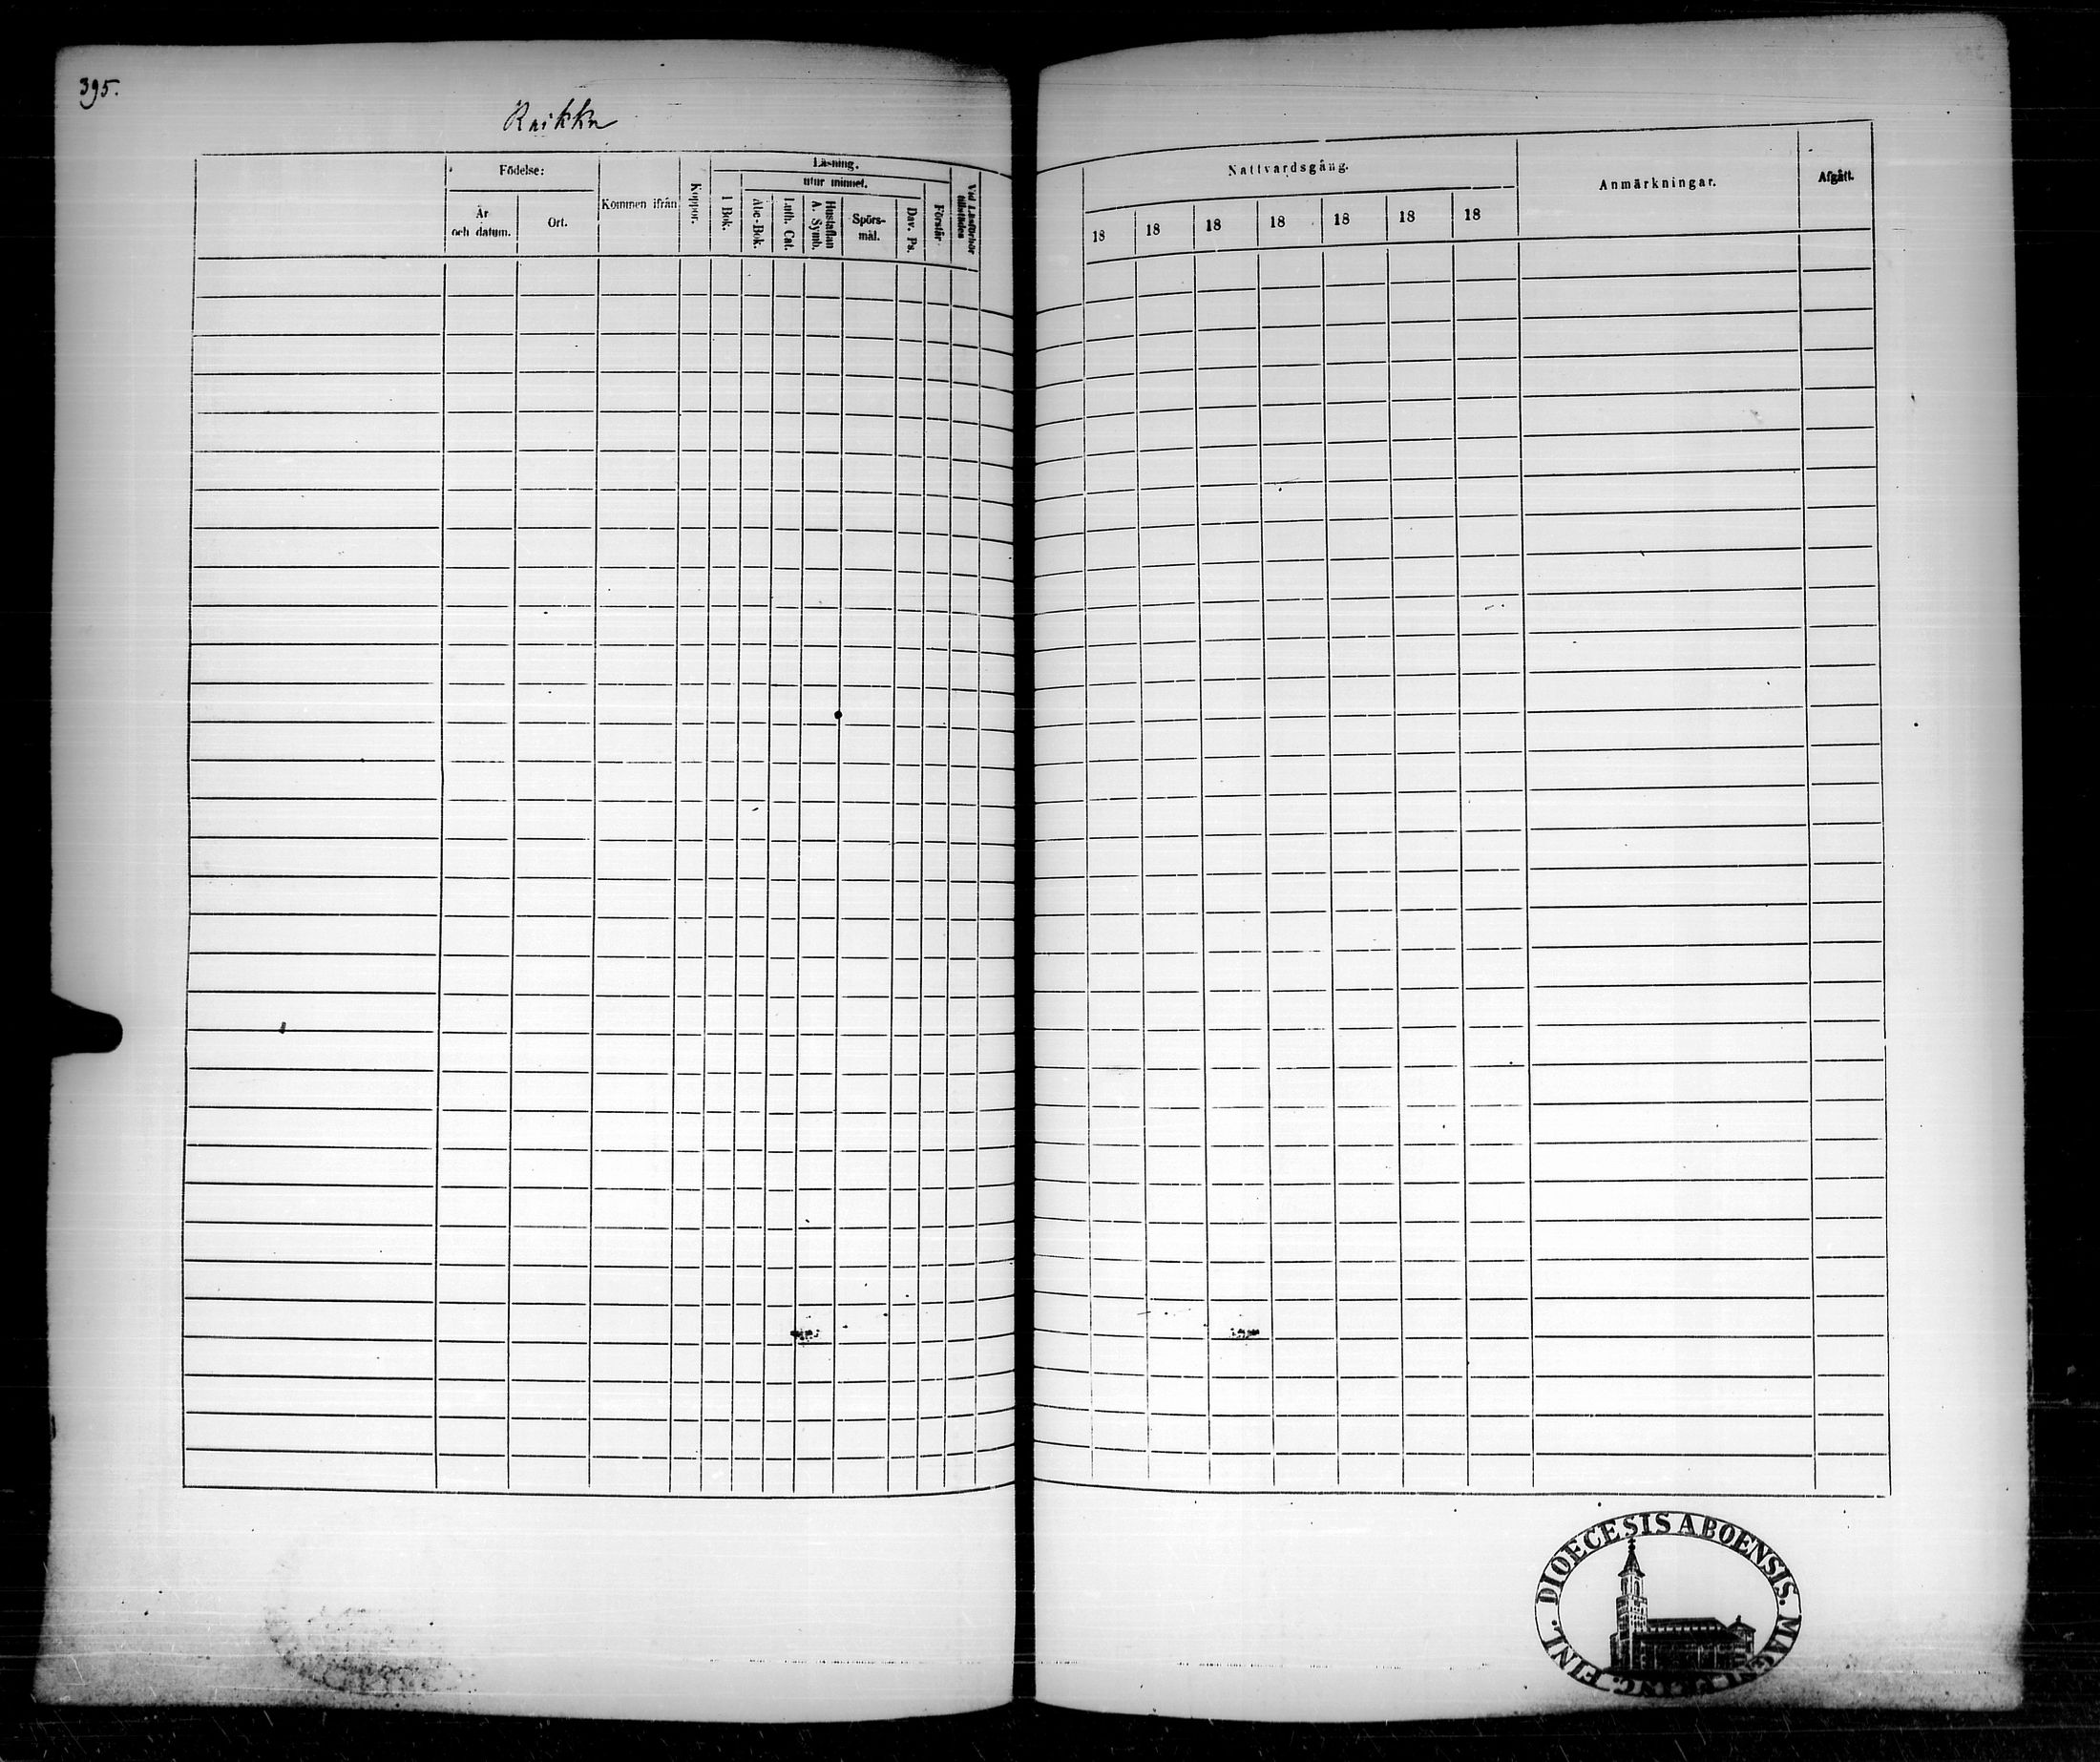 395.
Raikku
Födelse:
År
och datum.
Ort.
Kommen ifrån
Koppor.
Läsning.
utur minnet.
I Bok.
Abc-Bok.
Luth. Cat.
Hustaflan
A. Symb.
Spörs-
mål.
Dav. Ps.
Förstår
Vid Läsförhör
tillstädes
Nattvardsgång.
18 18 18 18 18 18 18
Anmärkningar.
Afgått.
DIOECESIS ABOENSIS. MAGNI DUC. FINL.